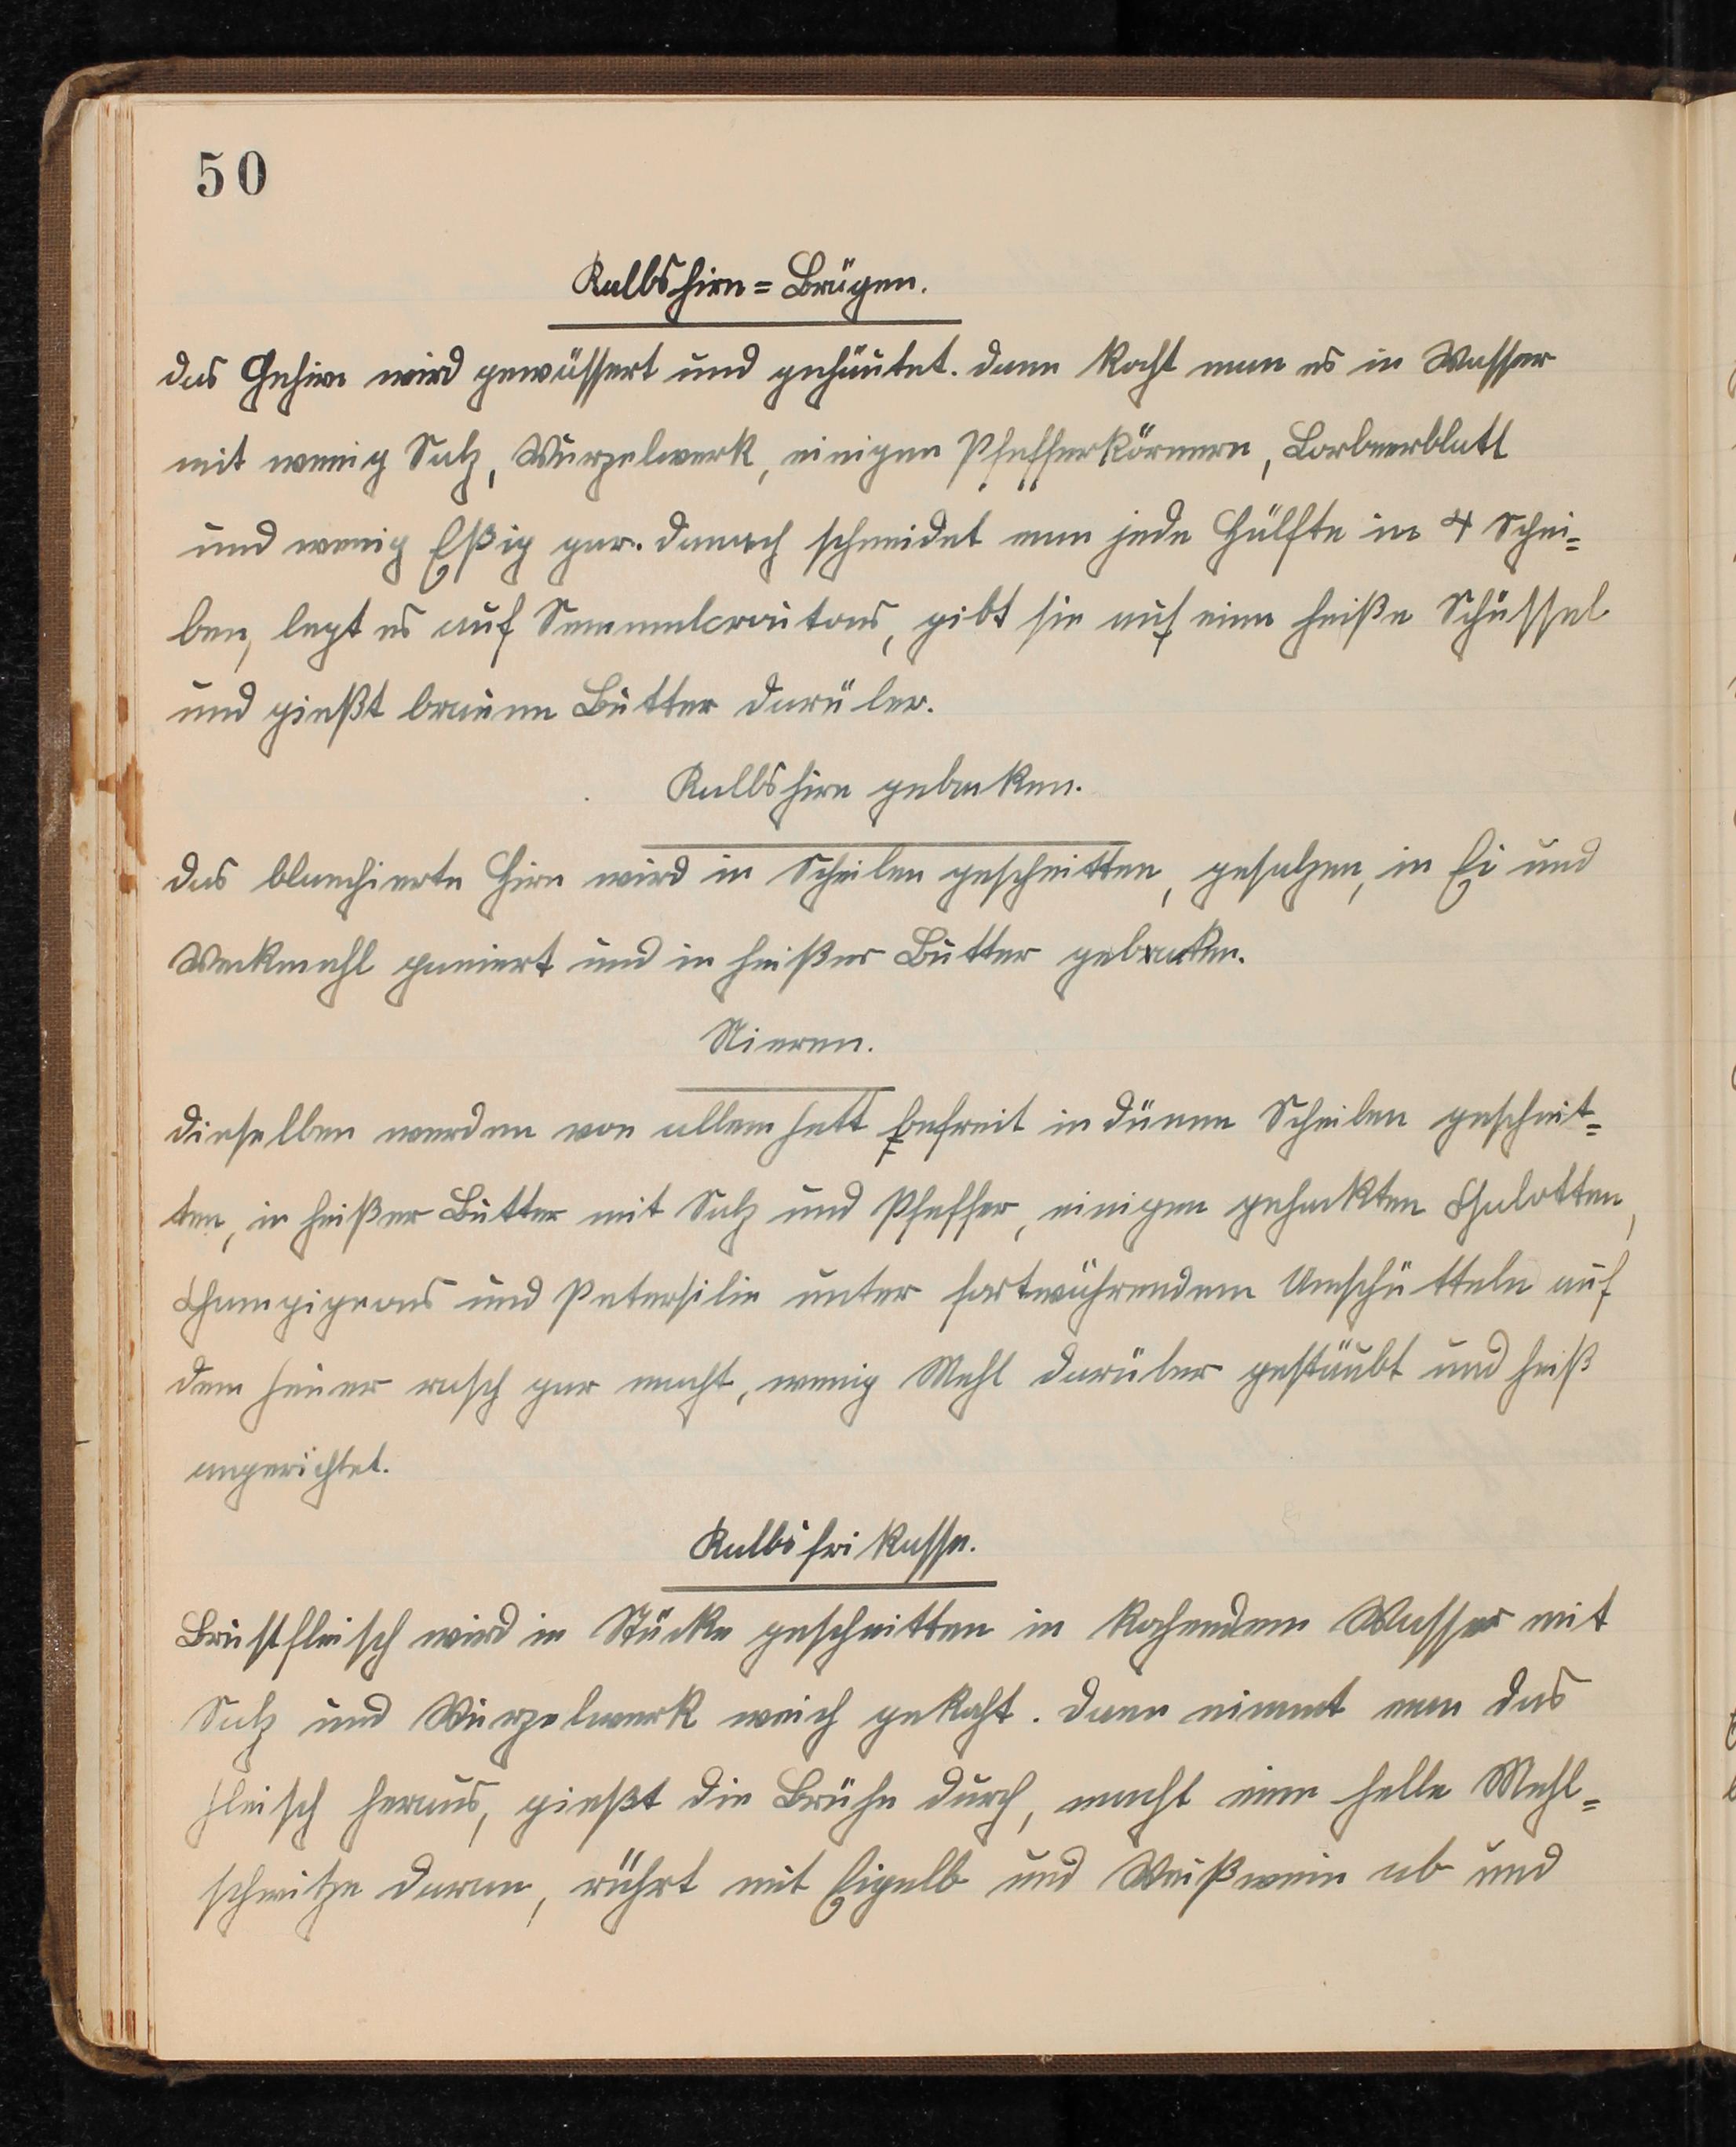 50
Kalbshirn=Brägen.
Das Gehirn wird gewässert und gehäutet. Dann kocht man es in Wasser
mit wenig Salz, Wurzelwerk, einigen Pfefferkörnern, Lorbeerblatt
und wenig Eßig gar. Danach schneidet man jede Hälfte in 4 Schei=
ben, legt es auf Semmelcroutons, gibt sie auf eine heiße Schüssel
und gießt braune Butter darüber.
Kalbshirn gebacken.
Das blanchierte Hirn wird in Scheiben geschnitten, gesalzen, in Ei und
Weckmehl paniert und in heißer Butter gebacken.
Nieren.
Dieselben werden von allem Fett befreit in dünne Scheiben geschnit=
ten, in heißer Butter mit Salz und Pfeffer, einigen gehackten Chalotten,
Champignons und Petersilie unter fortwährendem Umschütteln auf
dem Feuer rasch gar macht, wenig Mehl darüber gestäubt und heiß
angerichtet.
Kalbsfrikasse.
Brustfleisch wird in Stücke geschnitten in kochendem Wasser mit
Salz und Wurzelwerk weich gekocht. Dann nimmt man das
Fleisch heraus, gießt die Brühe durch, macht eine helle Mehl=
schwitze daran, rührt mit Eigelb und Weißwein ab und